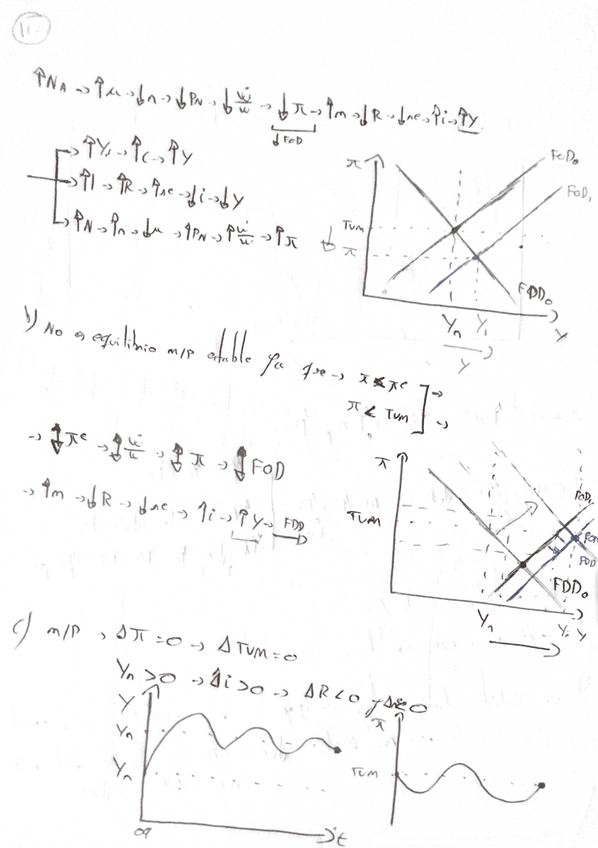 11.
↑N_A → ↑μ → ↓n → ↓PN → ↓ẇ/w → ↓π → ↑m → ↓R → ↓ne → ↑i → ↑Y
↓FOD
→ ↑Y, → ↑C → ↑Y
→ ↑I → ↑R → ↑ne → ↓i → ↓Y
→ ↑N → ↑n → ↓μ → ↑PN → ↑ẇ/w → ↑π
π
FOD₀
FOD₁
TUM
↓ π
FDD₀
Yn Y₁ Y
→
Y
b) No es equilibrio m/p estable ya que → π < πᵉ
π < TUM
→ ↕πᵉ → ↕ẇ/w → ↕π → ↕FOD
→ ↑m → ↓R → ↓ne → ↑i → ↑Y → FDD
π
TUM
FOD
FDD
FDD₀
Yn Y₁ Y
c) m/p → Δπ=0 → ΔTUM=0
Yn>0 → Δi>0 → ΔR<0 y Δne<0
Y
Yn
Yn
t
π
TUM